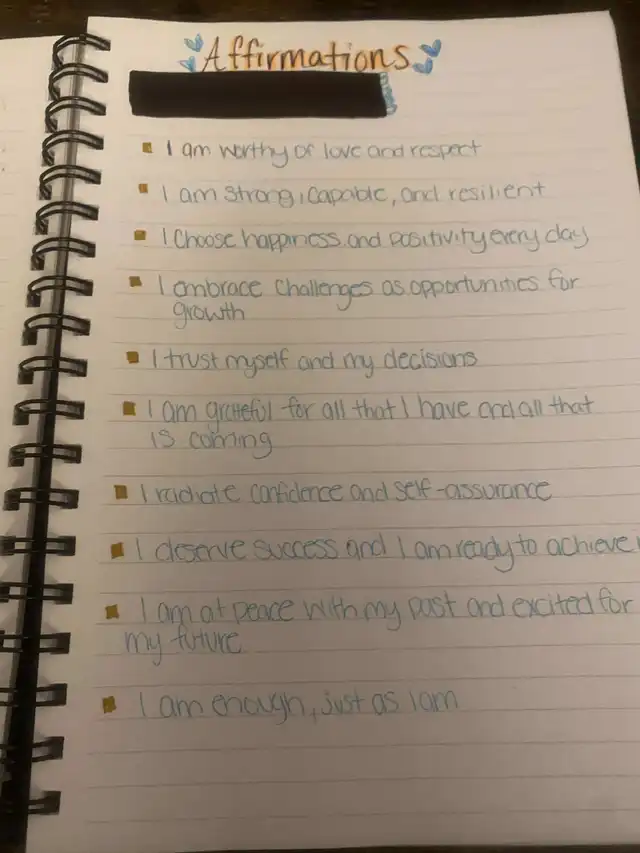 Affirmations
I am worthy of love and respect
I am strong, capable, and resilient
I choose happiness and positivity every day
I embrace challenges as opportunities for
growth
I trust myself and my decisions
I am grateful for all that I have and all that
is coming
I radiate confidence and self-assurance
I deserve success and I am ready to achieve
I am at peace with my past and excited for
my future
I am enough, just as I am